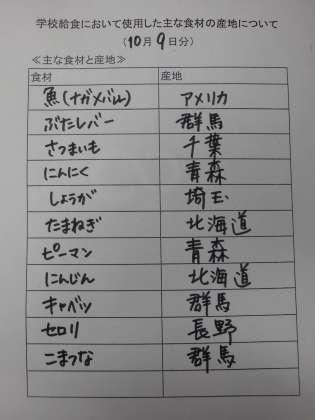 学校給食において使用した主な食材の産地について
(10月9日分)
≪主な食材と産地≫
食材 産地
魚(ナガメバル) アメリカ
ぶたレバー 群馬
さつまいも 千葉
にんにく 青森
しょうが 埼玉
たまねぎ 北海道
ピーマン 青森
にんじん 北海道
キャベツ 群馬
セロリ 長野
こまつな 群馬